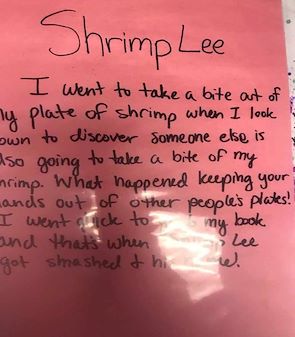 Shrimp Lee
I went to take a bite out of
ly plate of shrimp when I look
own to discover someone else is
lso going to take a bite of my
hrimp. What happened keeping your
ands out of other people's plates!
I went to my book
and that's when Lee
got smashed &